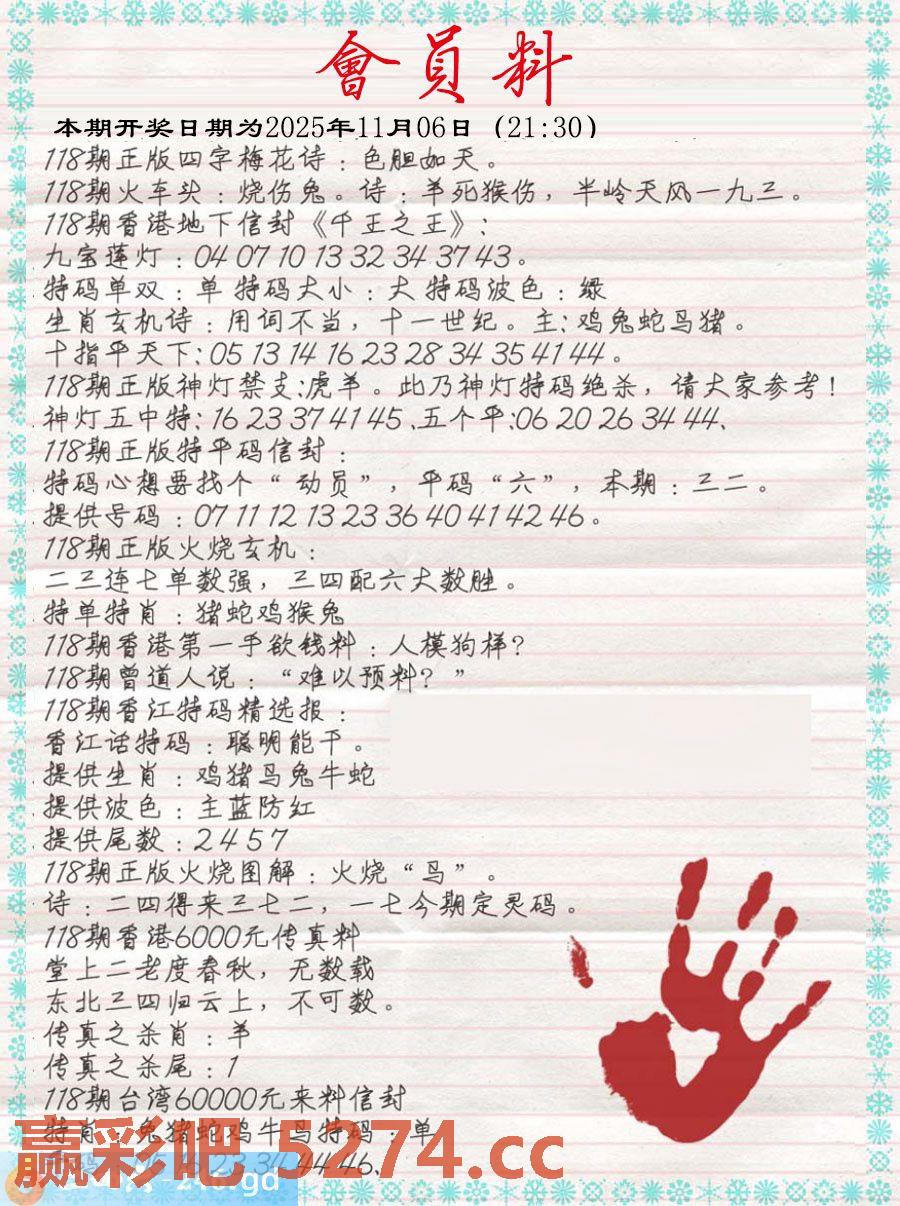 會員料
本期开奖日期为2025年11月06日（21:30）
118期正版四字梅花诗：色胆如天。
118期火车头：烧伤兔。诗：羊死猴伤，半岭天风一九三。
118期香港地下信封《千王之王》：
九宝莲灯：04 07 10 13 32 34 37 43。
特码单双：单 特码大小：大 特码波色：绿
生肖玄机诗：用词不当，十一世纪。主：鸡兔蛇鸟猪。
十指平天下：05 13 14 16 23 28 34 35 41 44。
118期正版神灯禁支：虎羊。此乃神灯特码绝杀，请大家参考！
神灯五中特：16 23 37 41 45、五个平：06 20 26 34 44、
118期正版特平码信封：
特码心想要找个“动员”，平码“六”，本期：三二。
提供号码：07 11 12 13 23 36 40 41 42 46。
118期正版火烧玄机：
二三连七单数强，三四配六大数胜。
特单特肖：猪蛇鸡猴兔
118期香港第一手欲钱料：人模狗样？
118期曾道人说：“难以预料？”
118期香江特码精选报：
香江话特码：聪明能干。
提供生肖：鸡猪鸟兔牛蛇
提供波色：主蓝防红
提供尾数：2 4 5 7
118期正版火烧图解：火烧“鸟”。
诗：二四得来三七二，一七今期定灵码。
118期香港6000元传真料
堂上二老度春秋，无数载
东北三四归云上，不可数。
传真之杀肖：羊
传真之杀尾：1
118期台湾60000元来料信封
特肖：兔猪蛇鸡牛鸟特码：单
赢彩吧 5274.cc
16 23 34 44 46、